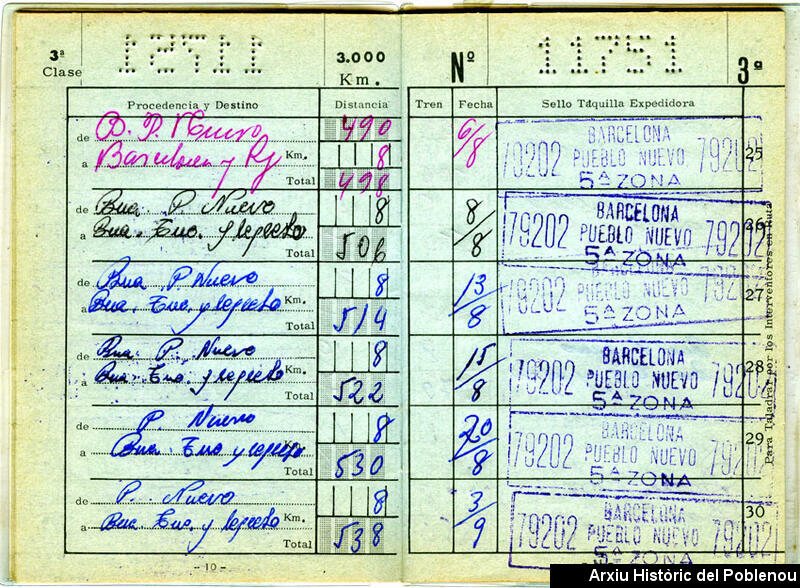 3ª Clase
11751
3.000 Km.
Nº
11751
3ª
Procedencia y Destino
Distancia
Tren
Fecha
Sello Taquilla Expedidora
de B. P. Nuevo 490 6/8
a Barcelona y Km. 8
Total 498
BARCELONA
79202 PUEBLO NUEVO 79202
5ª ZONA
25
de Bna. P. Nuevo 8 8/8
a Bna. Tno. y regreso
Total 506
BARCELONA
79202 PUEBLO NUEVO 79202
5ª ZONA
26
de Bna. P. Nuevo 8 13/8
a Bna. Tno. y regreso Km.
Total 514
BARCELONA
79202 PUEBLO NUEVO 79202
5ª ZONA
27
de Bna. P. Nuevo 8 15/8
a Bna. Tno. y regreso Km.
Total 522
BARCELONA
79202 PUEBLO NUEVO
5ª ZONA
28
de P. Nuevo 8 20/8
a Bna. Tno. y regreso Km.
Total 530
BARCELONA
79202 PUEBLO NUEVO
5ª ZONA
29
de P. Nuevo 8 3/9
a Bna. Tno. y regreso Km.
Total 538
BARCELONA
79202 PUEBLO NUEVO 79202
5ª ZONA
30
Para Taladrar por los Interventores en Ruta
- 10 -
Arxiu Històric del Poblenou